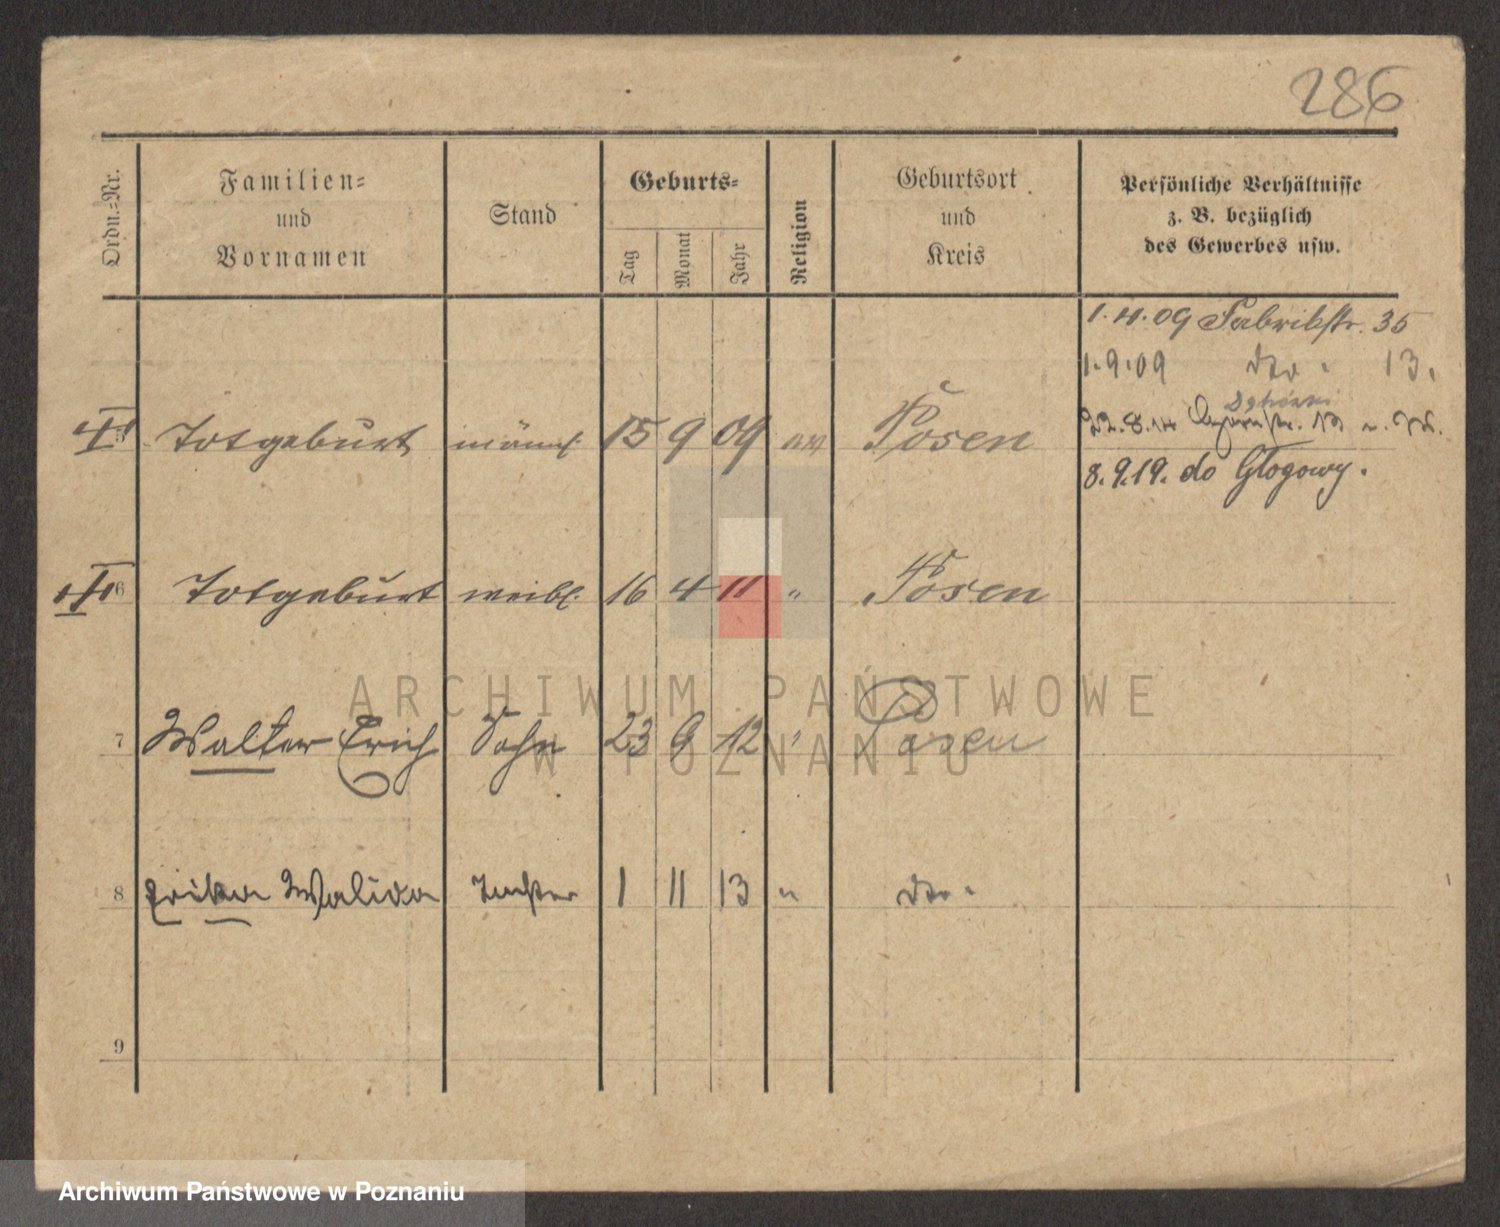 286
Ordn.-Nr.
Familien-
und
Vornamen
Stand
Geburts-
Tag
Monat
Jahr
Religion
Geburtsort
und
Kreis
Persönliche Verhältnisse
z. B. bezüglich
des Gewerbes usw.
1. 4. 09 Fabrikstr. 35
1. 9. 09 dto. 13.
II Totgeburt männl. 15 9 09 ev Posen
8. 9. 19. do Głogowy.
III 6 Totgeburt weibl. 16 4 11 " Posen
ARCHIWUM PAŃSTWOWE
7 Walter Erich Sohn 23 9 12 " Posen
W POZNANIU
8 Erika Walida Tochter 1 11 13 " dto.
9
Archiwum Państwowe w Poznaniu